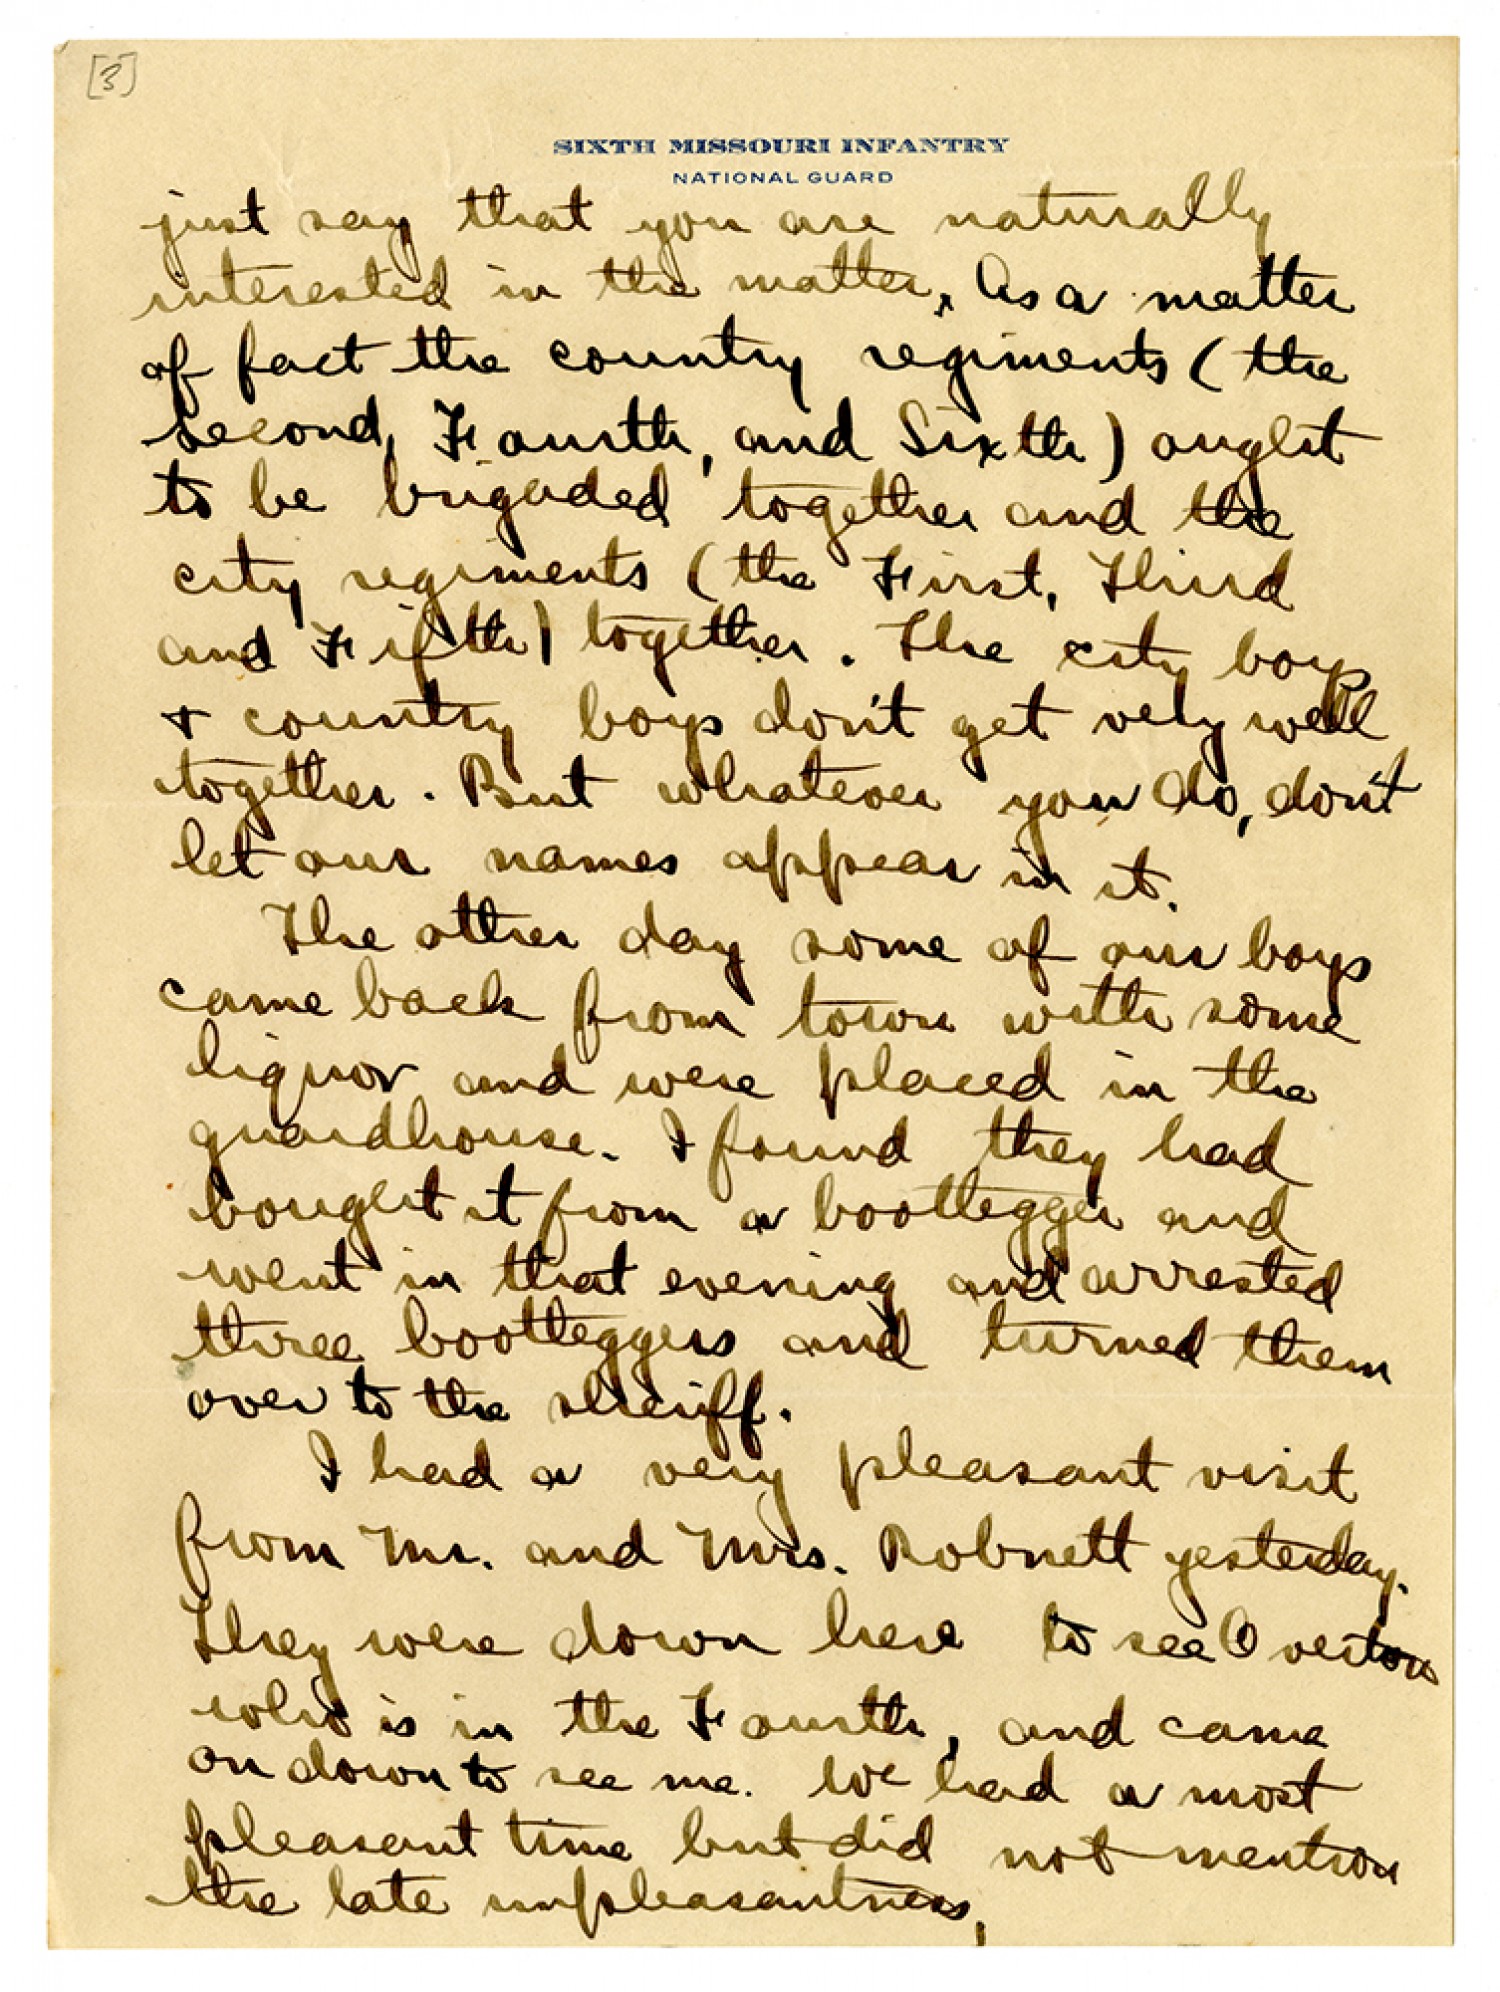 [3]
SIXTH MISSOURI INFANTRY
NATIONAL GUARD
just say that you are naturally
interested in the matter. As a matter
of fact the country regiments (the
Second, Fourth, and Sixth) ought
to be brigaded together and the
city regiments (the First, Third
and Fifth) together. The city boys
& country boys don't get very well
together. But whatever you do, don't
let our names appear in it.
The other day some of our boys
came back from town with some
liquor and were placed in the
guardhouse. I found they had
bought it from a bootlegger and
went in that evening and arrested
three bootleggers and turned them
over to the sheriff.
I had a very pleasant visit
from Mr. and Mrs. Robnett yesterday.
They were down here to see Overton
who is in the Fourth, and came
on down to see me. We had a most
pleasant time but did not mention
the late unpleasantness,